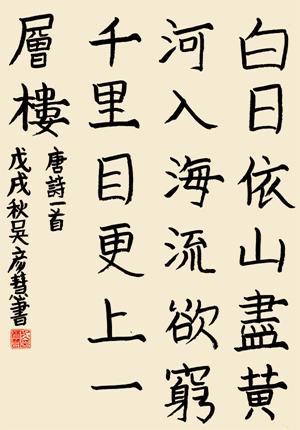 白日依山盡黄
河入海流欲窮
千里目更上一
層樓
唐詩一首
戊戌秋吴彦慧書